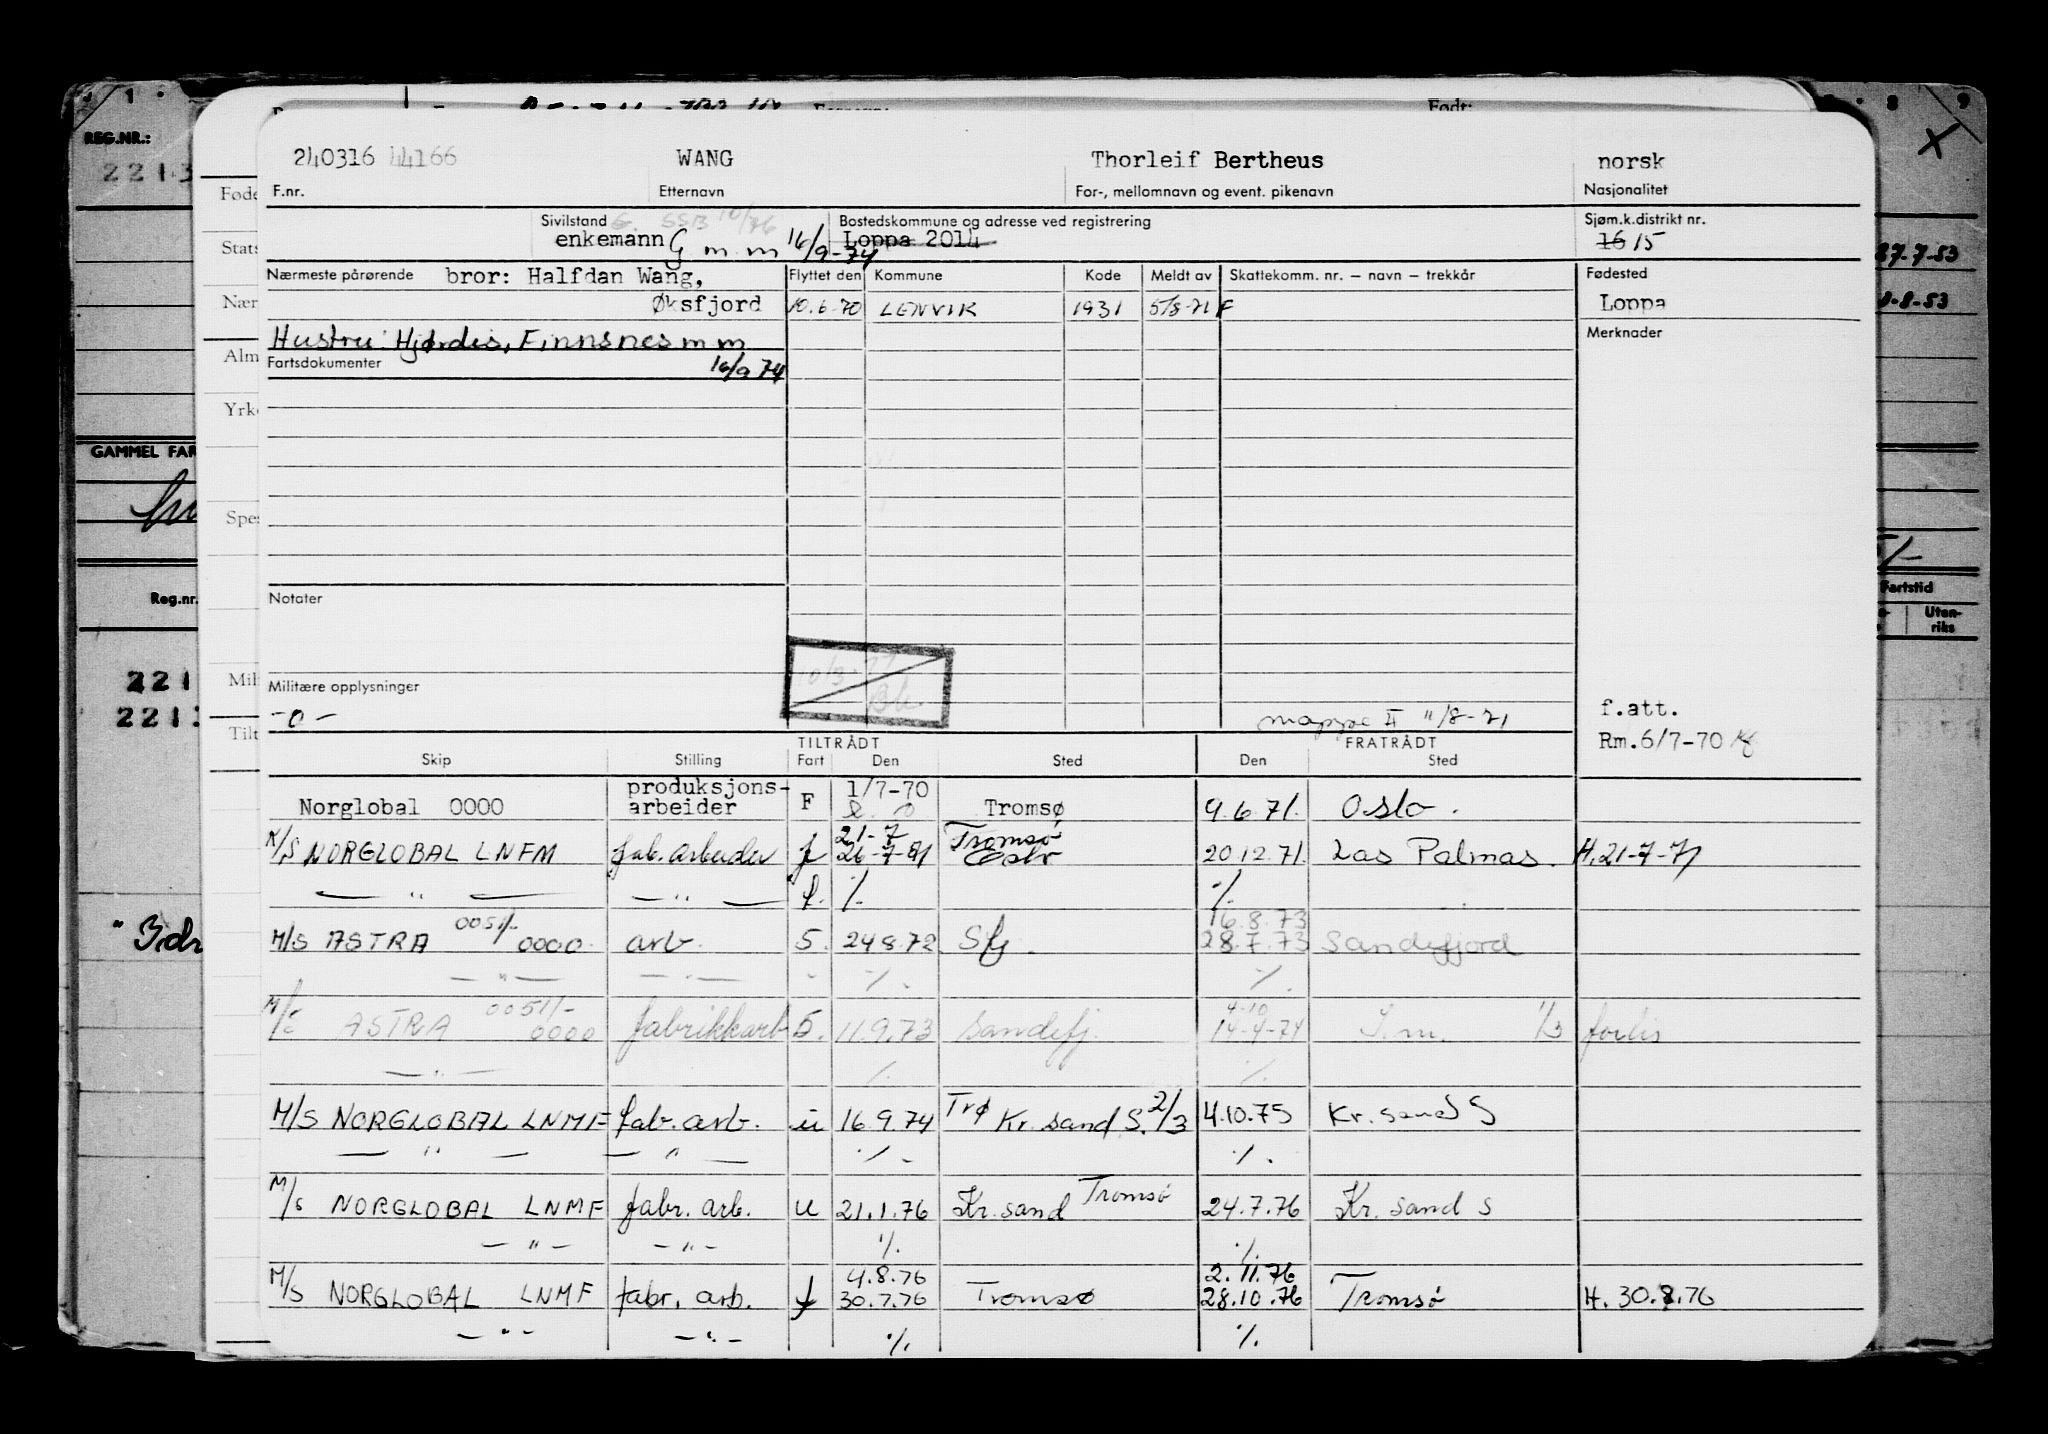 REG.NR.:
Født:
240316 44166 WANG Thorleif Bertheus norsk
F.nr. Etternavn For-, mellomnavn og event. pikenavn Nasjonalitet
Sivilstand G. SSB 10/76 Bostedskommune og adresse ved registrering Sjøm.k.distrikt nr.
enkemann G m.m 16/9-74 Loppa 2014 16 15
Nærmeste pårørende bror: Halfdan Wang, Flyttet den Kommune Kode Meldt av Skattekomm. nr. – navn – trekkår Fødested
Øksfjord 10.6.70 LENVIK 1931 5/8-71 F Loppa
Hustru: Hjørdis, Finnsnes m m Merknader
Fartsdokumenter 16/9 74
Notater
Militære opplysninger
-0-
10/3-71
mappe II 11/8-71
f.att.
Rm.6/7-70
TILTRÅDT FRATRÅDT
Skip Stilling Fart Den Sted Den Sted
produksjons- 1/7-70
Norglobal 0000 arbeider F Tromsø 9.6.71. Oslo.
21-7 Tromsø
K/S NORGLOBAL LNFM fab.arbeider f 26-7-71 Oslo 20.12.71. Las Palmas. H.21-7-71
— " — — " — f. ./. ./.
0051/- 16.8.73
M/S ASTRA 0000 arb. S. 24.8.72 Sfj. 28.7.73 Sandefjord
— " — — " — - ./. ./.
0051/- 4-10
M/S ASTRA 0000 fabrikkarb S. 11.9.73 Sandefj. 14-4-74 S.m. 1/3 forlis
— " — ./. ./.
M/S NORGLOBAL LNMF fab. arb. u 16.9.74 Trø Kr.sand S. 2/3 4.10.75 Kr.sand S
— " — — " — ./. ./.
M/S NORGLOBAL LNMF fabr. arb. u 21.1.76 Kr.sand Tromsø 24.7.76 Kr.sand S
— " — — " — ./. ./.
4.8.76 2.11.76
M/S NORGLOBAL LNMF fabr. arb. f 30.7.76 Tromsø 28.10.76 Tromsø H. 30.7.76
— " — — " — ./. ./.
GAMMEL FAR
Reg.nr.
27-7-53
Fartstid
Uten-
riks